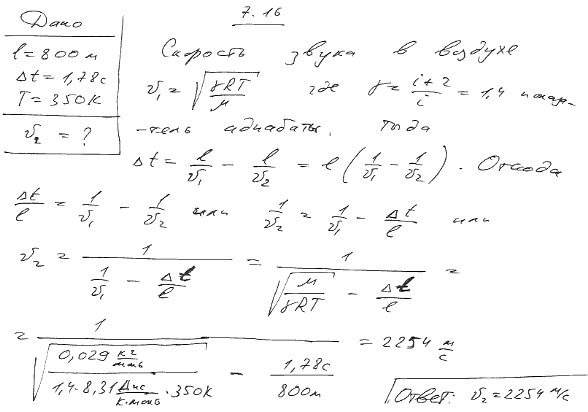 7.16
Дано
l = 800 м
Δt = 1,78 с
T = 350 К
v₂ = ?
Скорость звука в воздухе
v₁ = √(γRT/μ) где γ = (i+2)/i = 1,4 показа-
-тель адиабаты, тогда
Δt = l/v₁ - l/v₂ = l (1/v₁ - 1/v₂). Откуда
Δt/l = 1/v₁ - 1/v₂ или 1/v₂ = 1/v₁ - Δt/l или
v₂ = 1/(1/v₁ - Δt/l) = 1/(√(μ/γRT) - Δt/l) =
= 1/(√(0,029 кг/моль / (1,4·8,31 Дж/К·моль · 350К)) - 1,78с/800м) = 2254 м/с
Ответ: v₂ = 2254 м/с